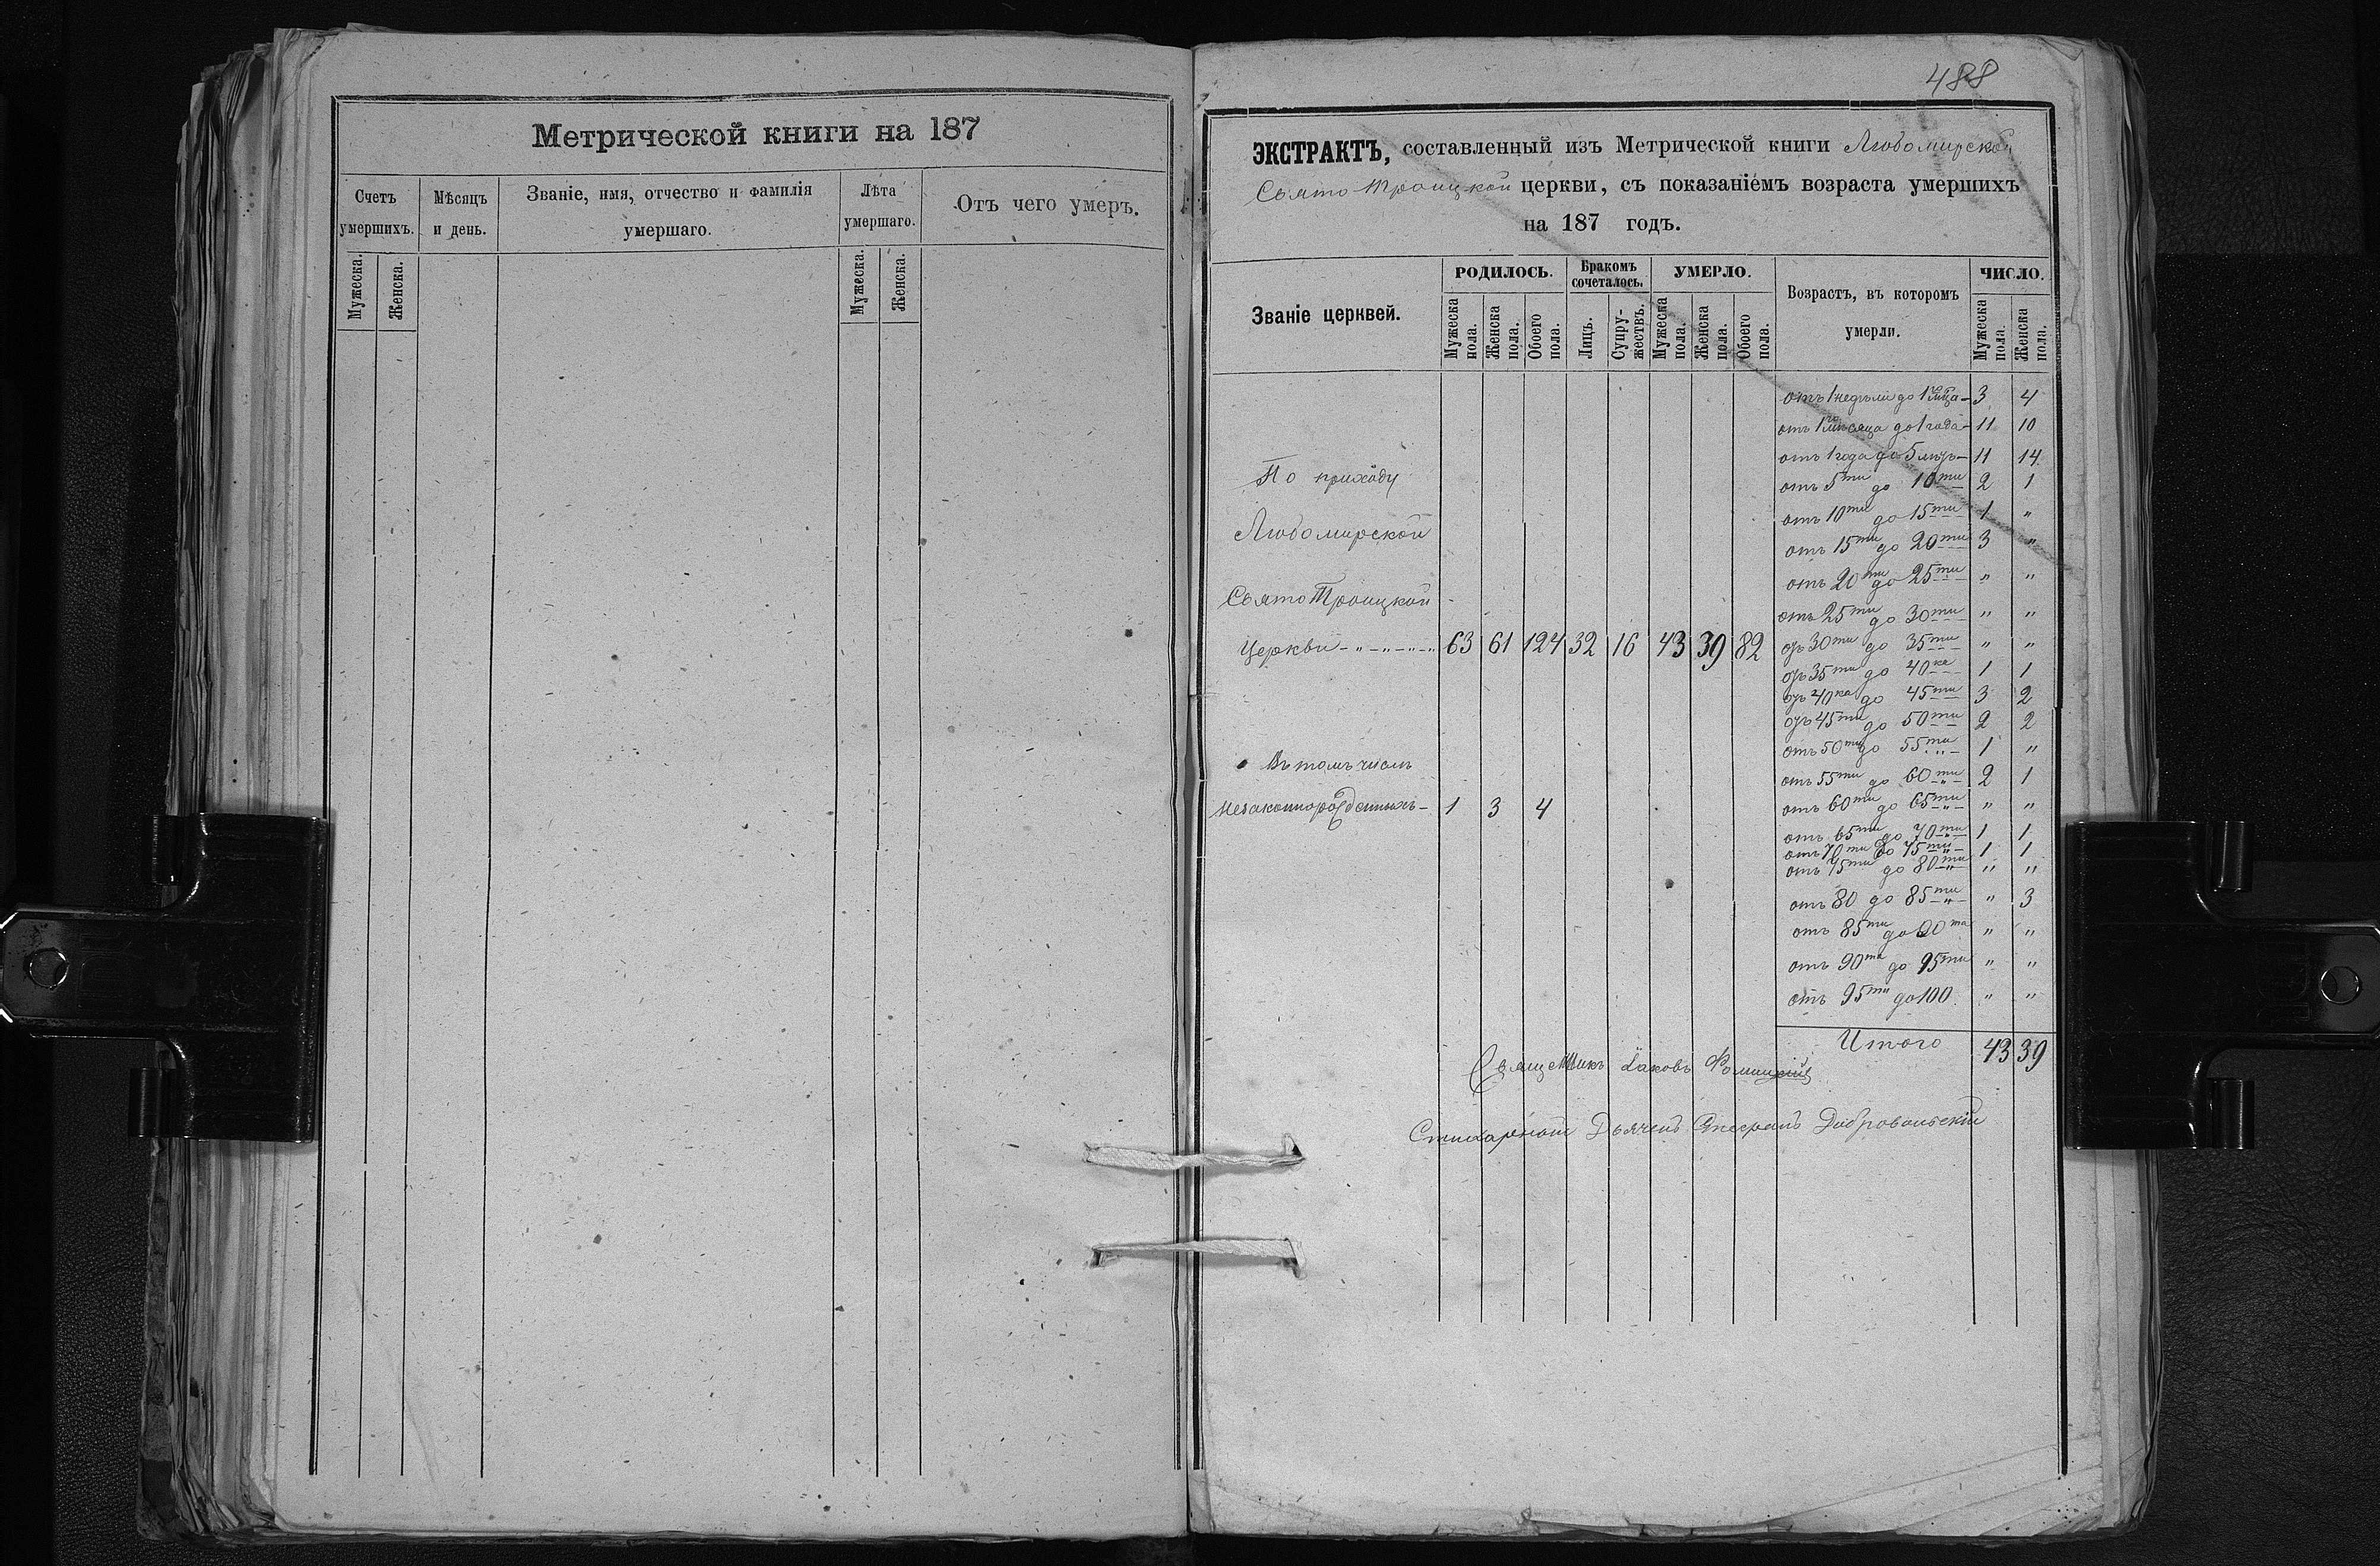 Метрической книги на 187
Счетъ умершихъ.
Мѣсяцъ и день.
Званіе, имя, отчество и фамилія умершаго.
Лѣта умершаго.
Отъ чего умеръ.
Мужеска.
Женска.
Мужеска.
Женска.
488
ЭКСТРАКТЪ, составленный изъ Метрической книги Любомирской
Свято Троицкой церкви, съ показаніемъ возраста умершихъ
на 187 годъ.
Званіе церквей.
РОДИЛОСЬ.
Бракомъ сочеталось.
УМЕРЛО.
Возрастъ, въ которомъ умерли.
ЧИСЛО.
Мужеска пола.
Женска пола.
Обоего пола.
Лицъ.
Супружествъ.
Мужеска пола.
Женска пола.
Обоего пола.
Мужеска пола.
Женска пола.
отъ 1 недѣли до 1 мѣсца - 3 4
отъ 1го мѣсяца до 1 года - 11 10
отъ 1 года до 5 лѣтъ - 11 14
По приходу
отъ 5ти до 10ти 2 1
отъ 10ти до 15ти 1 "
Любомирской
отъ 15ти до 20ти 3 "
отъ 20ти до 25ти " "
СвятоТроицкой
отъ 25ти до 30ти " "
Церкви - " - " - " - " 63 61 124 32 16 43 39 82
отъ 30ти до 35ти " "
отъ 35ти до 40ка 1 1
отъ 40ка до 45ти 3 2
отъ 45ти до 50ти 2 2
отъ 50ти до 55ти 1 "
Въ томъ числѣ
отъ 55ти до 60ти 2 1
незаконнорожденныхъ - 1 3 4
отъ 60ти до 65ти " "
отъ 65ти до 70ти 1 1
отъ 70ти до 75ти 1 1
отъ 75ти до 80ти " "
отъ 80 до 85ти " 3
отъ 85ти до 90та " "
отъ 90та до 95ти " "
отъ 95ти до 100 " "
Итого 43 39
Священникъ Іаковъ
Стихарный Дьячекъ